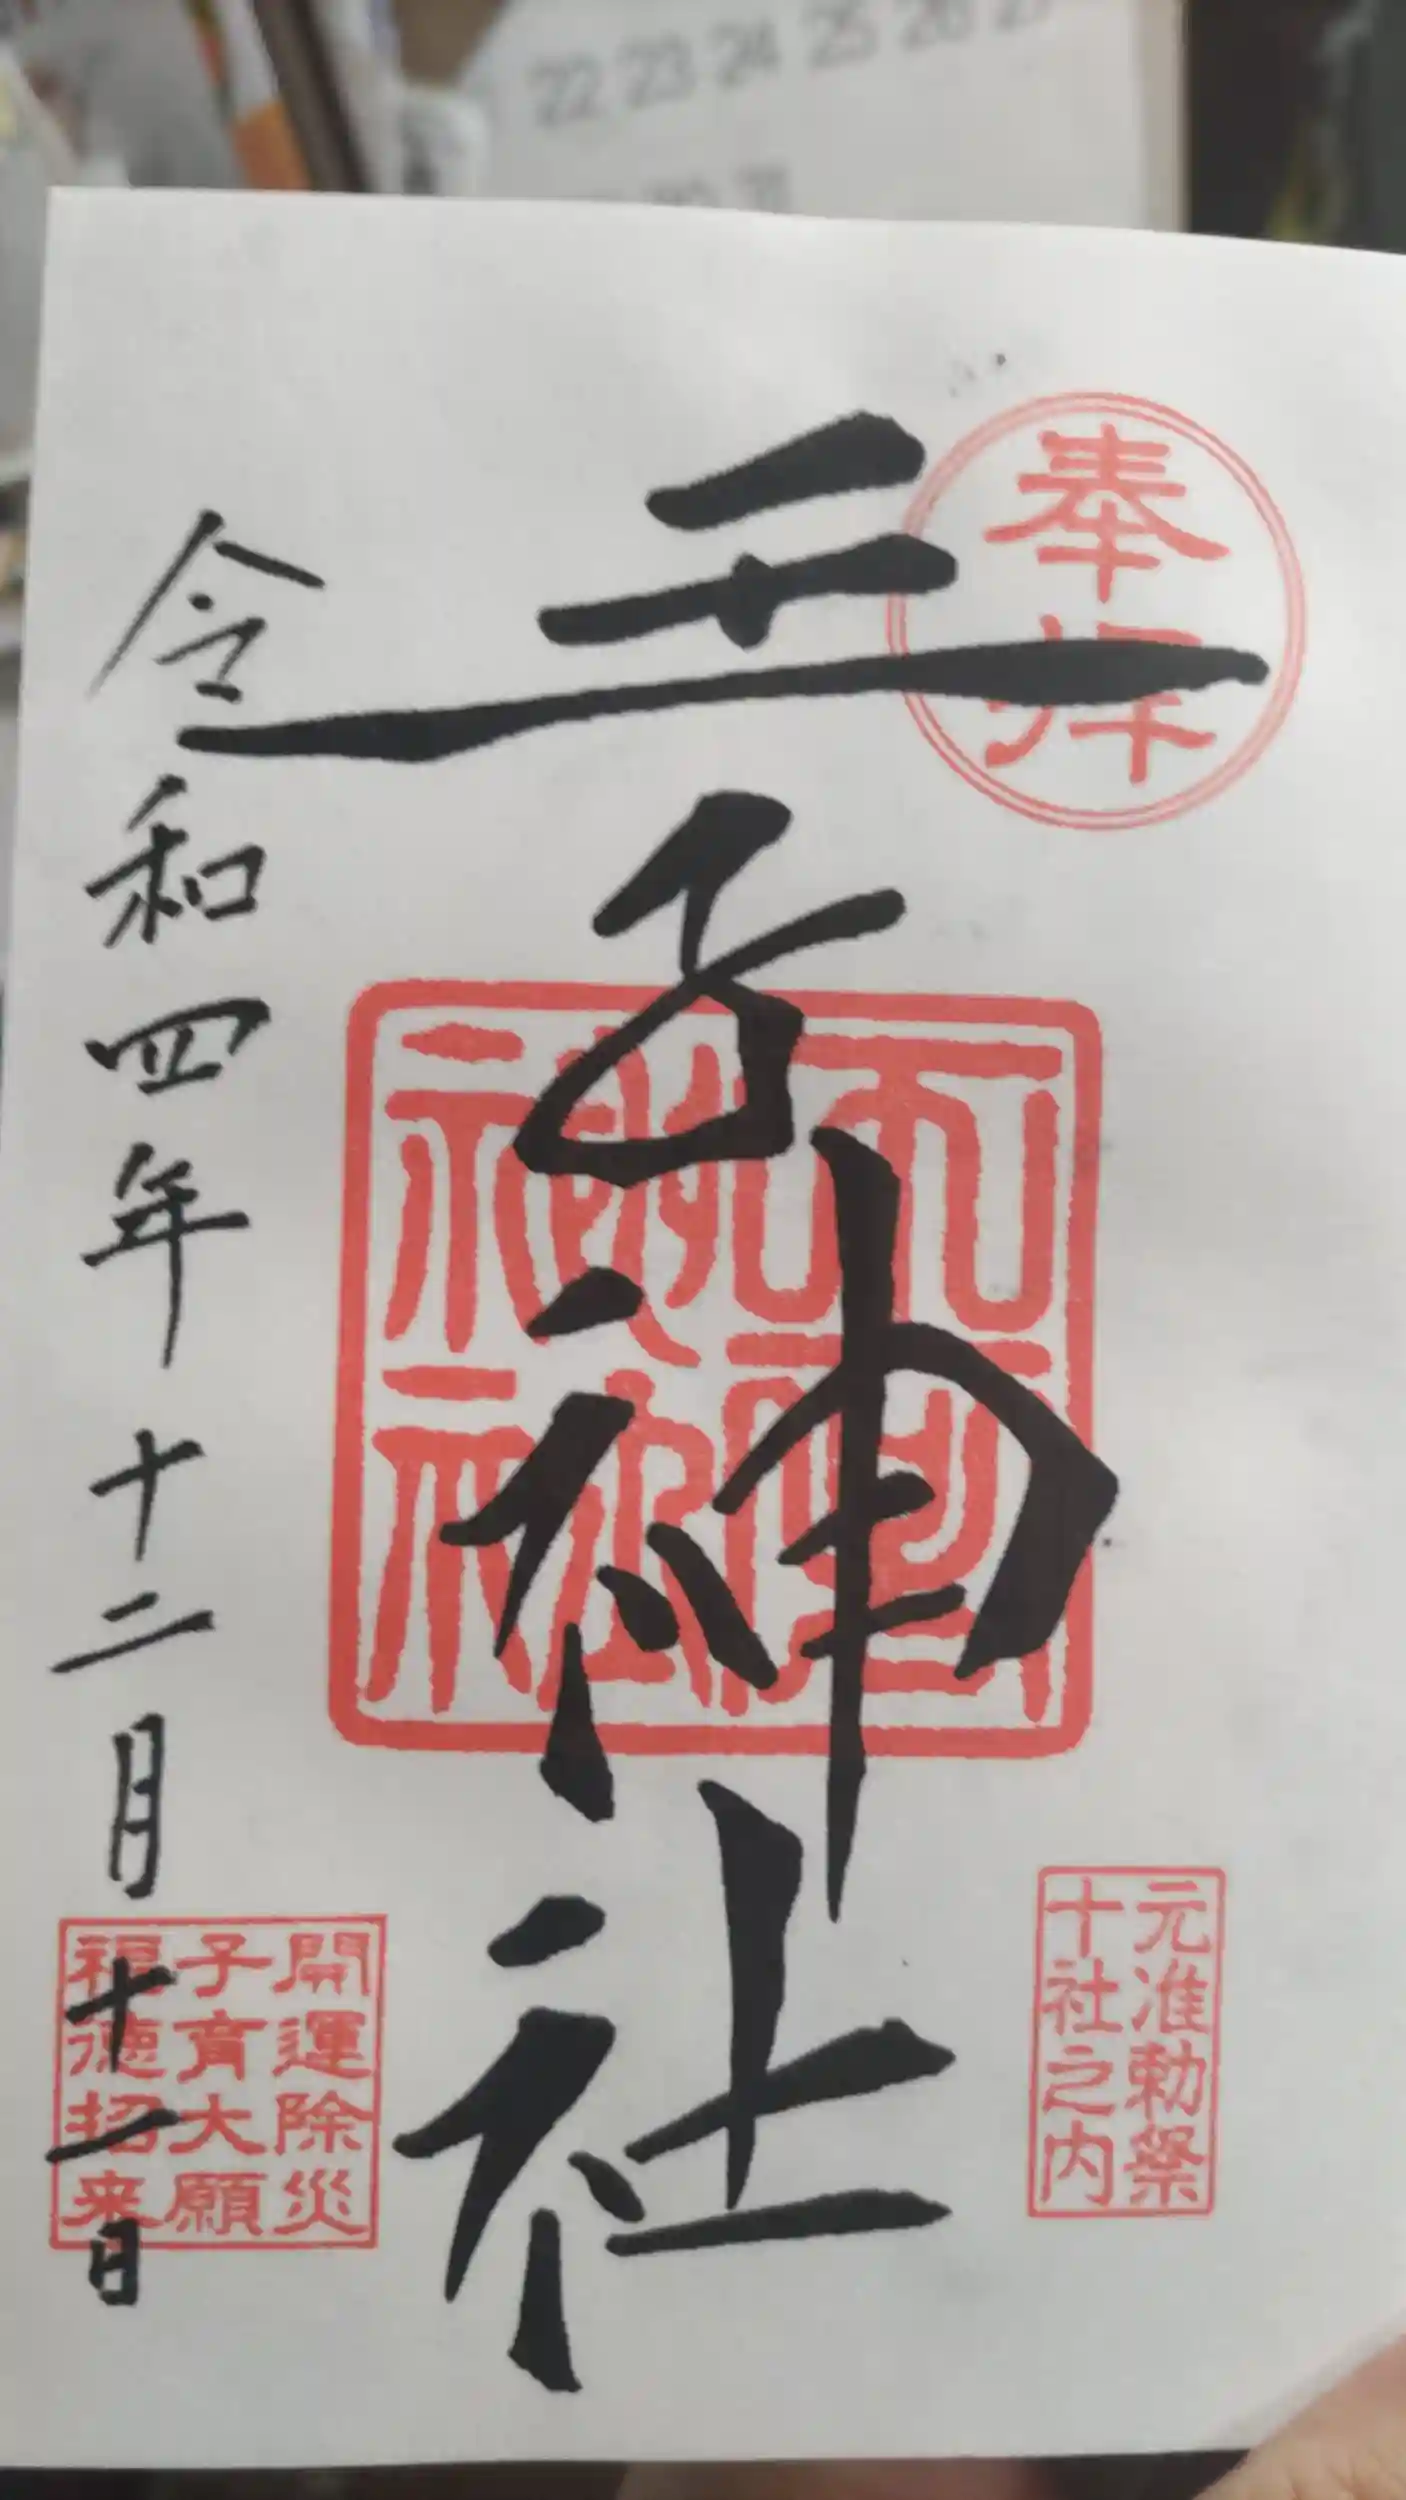 22 23 24 25 26 27
30 31
奉拝
王子神社
元准勅祭
十社之内
令和四年十二月十一日
開運除災
子育大願
福徳招来